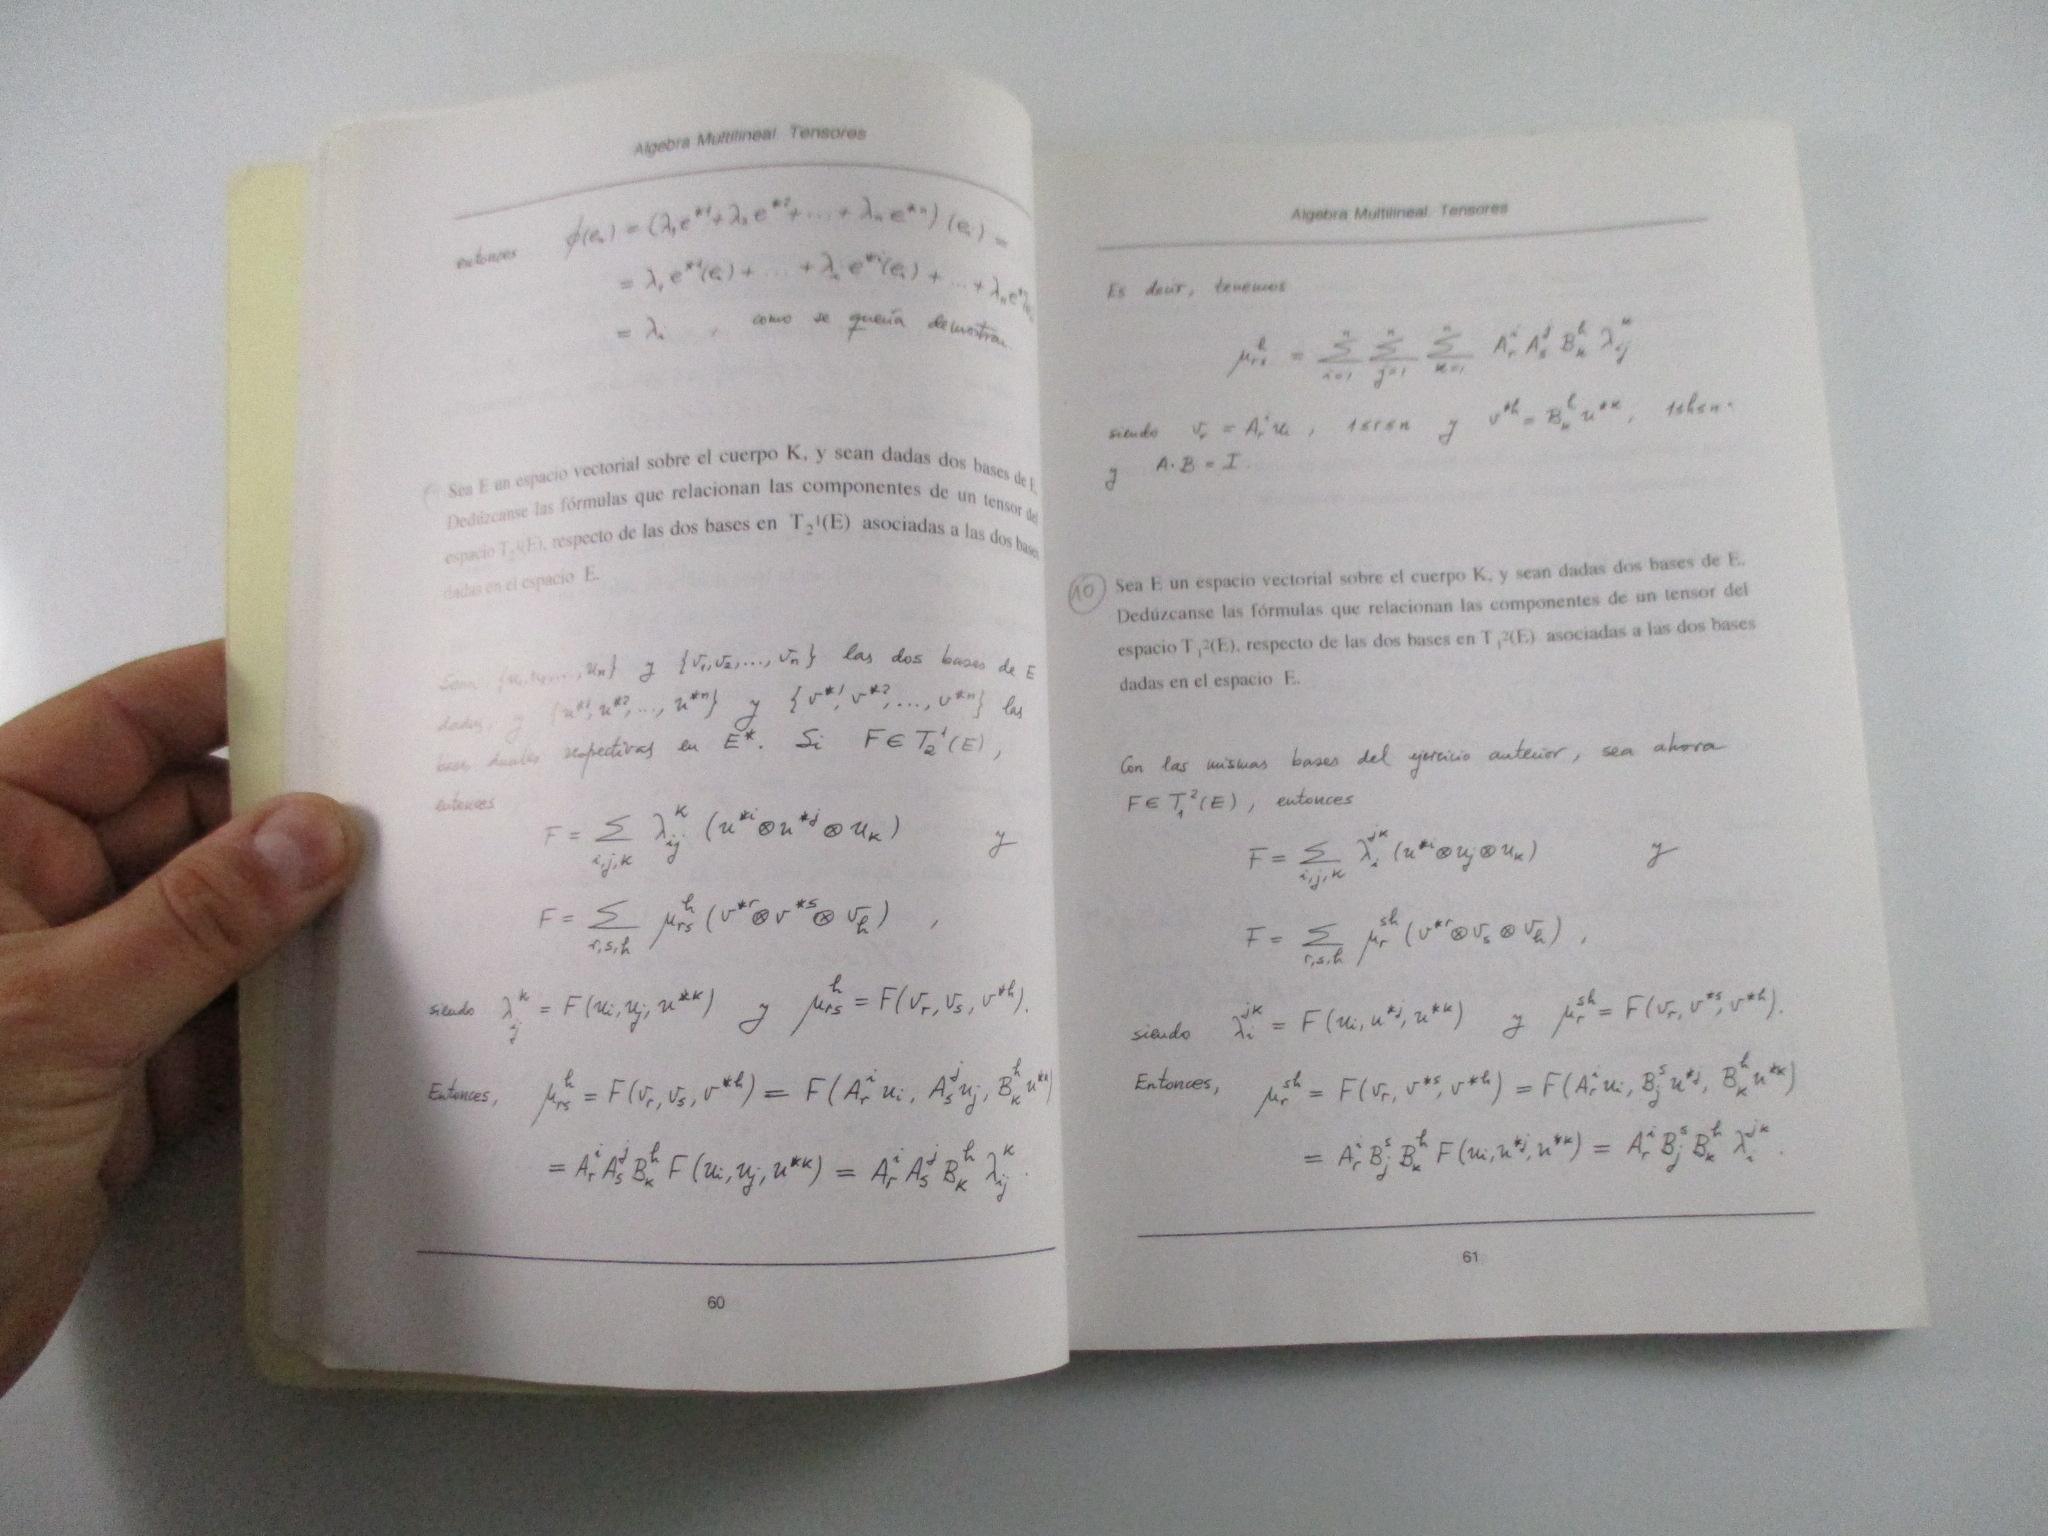 Algebra Multilineal. Tensores
entonces φ(eᵢ) = (λ₁e*¹+λ₂e*²+...+λₙe*ⁿ)(eᵢ) =
= λ₁e*¹(eᵢ)+...+λᵢe*ⁱ(eᵢ)+...+λₙe*ⁿ
= λᵢ , como se quería demostrar.
Sea E un espacio vectorial sobre el cuerpo K, y sean dadas dos bases de E.
Dedúzcanse las fórmulas que relacionan las componentes de un tensor del
espacio T₂¹(E), respecto de las dos bases en T₂¹(E) asociadas a las dos bases
dadas en el espacio E.
Sean {u₁,u₂,...,uₙ} y {v₁,v₂,...,vₙ} las dos bases de E
dadas, y {u*¹,u*²,...,u*ⁿ} y {v*¹,v*²,...,v*ⁿ} las
bases duales respectivas en E*. Si F∈T₂¹(E),
entonces
F = Σ_{i,j,k} λ_{ij}^k (u*ⁱ⊗u*ʲ⊗u_k) y
F = Σ_{r,s,h} μ_{rs}^h (v*ʳ⊗v*ˢ⊗v_h) ,
siendo λ_{ij}^k = F(u_i,u_j,u*ᵏ) y μ_{rs}^h = F(v_r,v_s,v*ʰ).
Entonces, μ_{rs}^h = F(v_r,v_s,v*ʰ) = F(A_r^i u_i, A_s^j u_j, B_k^h u*ᵏ)
= A_r^i A_s^j B_k^h F(u_i,u_j,u*ᵏ) = A_r^i A_s^j B_k^h λ_{ij}^k .
60
Algebra Multilineal. Tensores
Es decir, tenemos
μ_{rs}^h = Σ_{i=1}^n Σ_{j=1}^n Σ_{k=1}^n A_r^i A_s^j B_k^h λ_{ij}^k
siendo v_r = A_r^i u_i , 1≤r≤n y v*ʰ = B_k^h u*ᵏ, 1≤h≤n.
y A·B = I.
10 Sea E un espacio vectorial sobre el cuerpo K, y sean dadas dos bases de E.
Dedúzcanse las fórmulas que relacionan las componentes de un tensor del
espacio T₁²(E), respecto de las dos bases en T₁²(E) asociadas a las dos bases
dadas en el espacio E.
Con las mismas bases del ejercicio anterior, sea ahora
F∈T₁²(E), entonces
F = Σ_{i,j,k} λ_i^{jk} (u*ⁱ⊗u_j⊗u_k) y
F = Σ_{r,s,h} μ_r^{sh} (v*ʳ⊗v_s⊗v_h) ,
siendo λ_i^{jk} = F(u_i,u*ʲ,u*ᵏ) y μ_r^{sh} = F(v_r,v*ˢ,v*ʰ).
Entonces, μ_r^{sh} = F(v_r,v*ˢ,v*ʰ) = F(A_r^i u_i, B_j^s u*ʲ, B_k^h u*ᵏ)
= A_r^i B_j^s B_k^h F(u_i,u*ʲ,u*ᵏ) = A_r^i B_j^s B_k^h λ_i^{jk} .
61